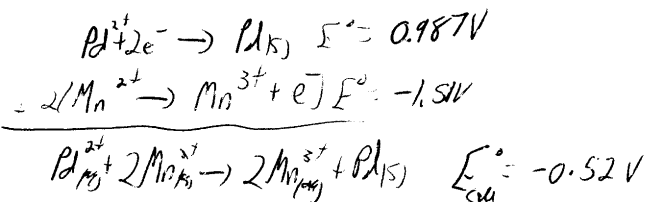 Pd²⁺+2e⁻ → Pd(s) E°= 0.987V
2(Mn²⁺ → Mn³⁺ + e⁻) E°= -1.51V
Pd²⁺(aq) + 2Mn²⁺(aq) → 2Mn³⁺(aq) + Pd(s) E°cell = -0.52V